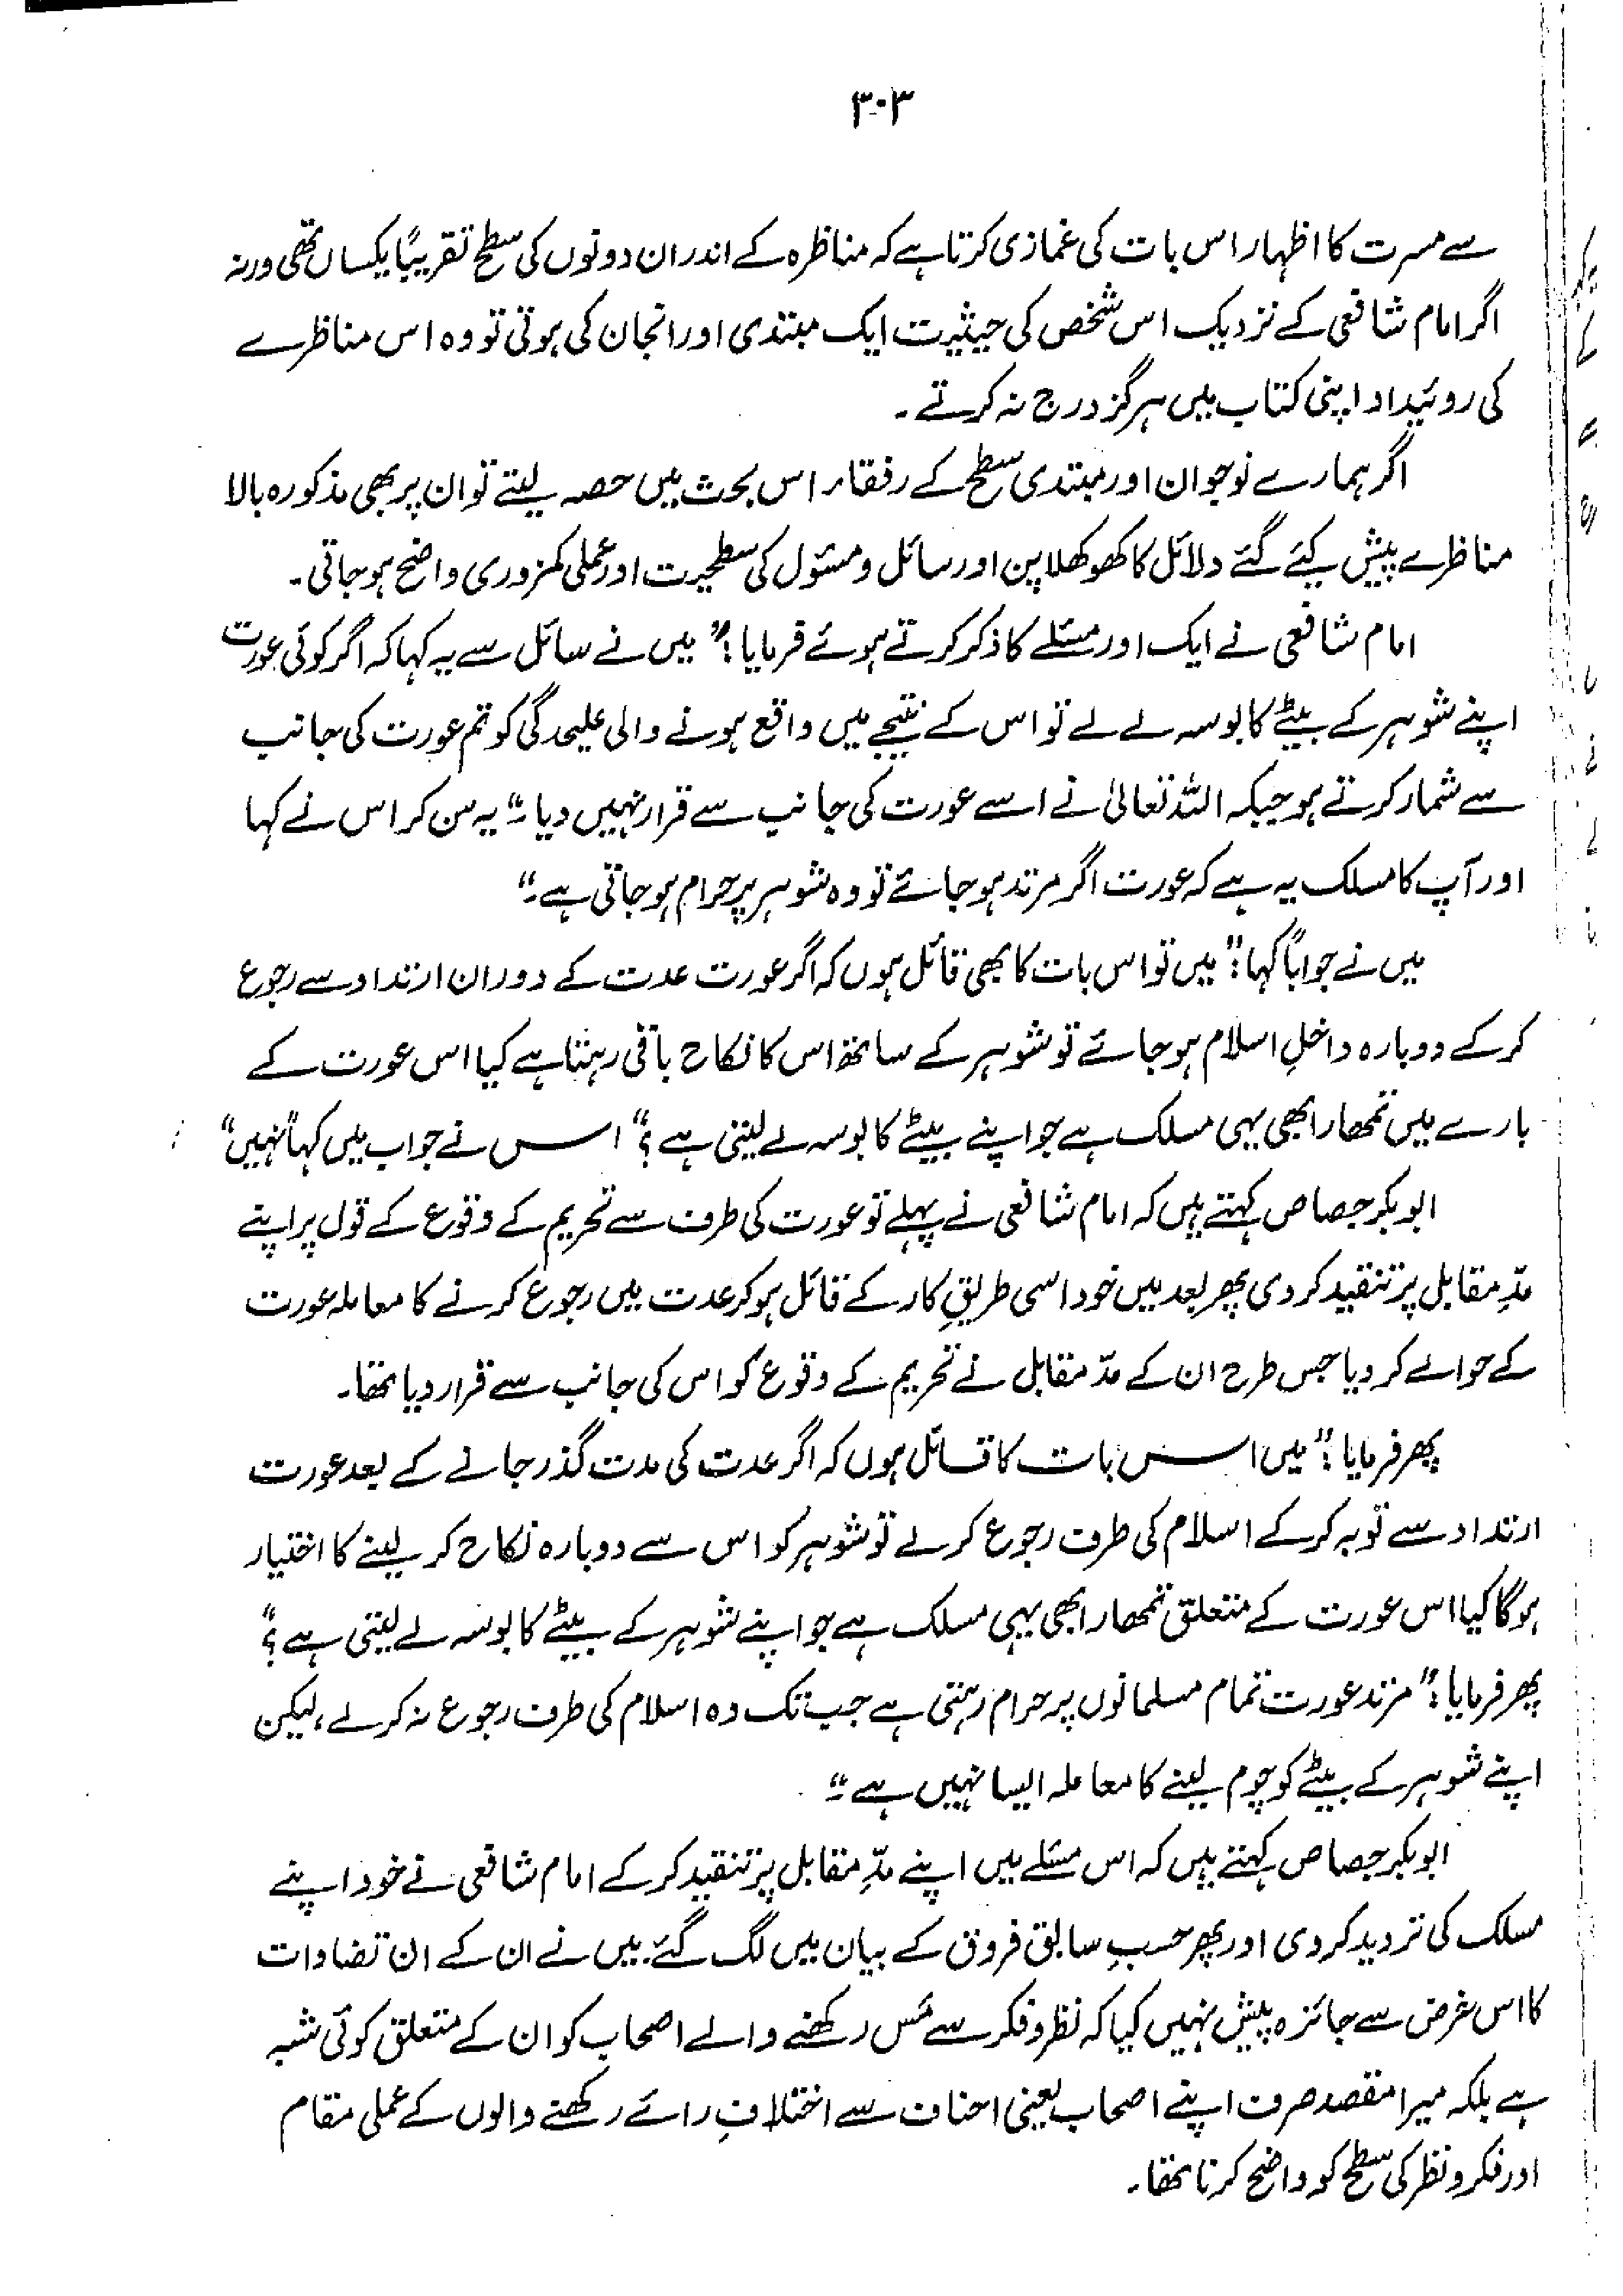 ۳۰۳
سے مسرت کا اظہار اس بات کی غمازی کرتا ہے کہ مناظرہ کے اندر ان دونوں کی سطح تقریباً یکساں تھی ورنہ
اگر امام شافعی کے نزدیک اس شخص کی حیثیت ایک مبتدی اور انجان کی ہوتی تو وہ اس مناظرے
کی روئیداد اپنی کتاب میں ہرگز درج نہ کرتے۔
اگر ہمارے نوجوان اور مبتدی سطح کے رفقاء اس بحث میں حصہ لیتے تو ان پر بھی مذکورہ بالا
مناظرے پیش کیئے گئے دلائل کا کھوکھلا پن اور سائل و مسئول کی سطحیت اور عملی کمزوری واضح ہو جاتی۔
امام شافعی نے ایک اور مسئلے کا ذکر کرتے ہوئے فرمایا: "میں نے سائل سے یہ کہا کہ اگر کوئی عورت
اپنے شوہر کے بیٹے کا بوسہ لے لے تو اس کے نتیجے میں واقع ہونے والی علیحدگی کو تم عورت کی جانب
سے شمار کرتے ہو جبکہ اللہ تعالیٰ نے اسے عورت کی جانب سے قرار نہیں دیا۔" یہ سن کر اس نے کہا
اور آپ کا مسلک یہ ہے کہ عورت اگر مرتد ہو جائے تو وہ شوہر پر حرام ہو جاتی ہے۔"
میں نے جواباً کہا: "میں تو اس بات کا بھی قائل ہوں کہ اگر عورت عدت کے دوران ارتداد سے رجوع
کر کے دوبارہ داخلِ اسلام ہو جائے تو شوہر کے ساتھ اس کا نکاح باقی رہتا ہے کیا اس عورت کے
بارے میں تمھارا بھی یہی مسلک ہے جو اپنے بیٹے کا بوسہ لے لیتی ہے؟" اس نے جواب میں کہا "نہیں"
ابو بکر جصاص کہتے ہیں کہ امام شافعی نے پہلے تو عورت کی طرف سے تحریم کے وقوع کے قول پر اپنے
مدِّ مقابل پر تنقید کر دی پھر بعد میں خود اسی طریقِ کار کے قائل ہو کر عدت میں رجوع کرنے کا معاملہ عورت
کے حوالے کر دیا جس طرح ان کے مدّ مقابل نے تحریم کے وقوع کو اس کی جانب سے قرار دیا تھا۔
پھر فرمایا: "میں اس بات کا قائل ہوں کہ اگر عدت کی مدت گذر جانے کے بعد عورت
ارتداد سے توبہ کر کے اسلام کی طرف رجوع کر لے تو شوہر کو اس سے دوبارہ نکاح کر لینے کا اختیار
ہوگا کیا اس عورت کے متعلق تمھارا بھی یہی مسلک ہے جو اپنے شوہر کے بیٹے کا بوسہ لے لیتی ہے؟"
پھر فرمایا: "مرتد عورت تمام مسلمانوں پر حرام رہتی ہے جب تک وہ اسلام کی طرف رجوع نہ کر لے، لیکن
اپنے شوہر کے بیٹے کو چوم لینے کا معاملہ ایسا نہیں ہے۔"
ابو بکر جصاص کہتے ہیں کہ اس مسئلے میں اپنے مدِّ مقابل پر تنقید کر کے امام شافعی نے خود اپنے
مسلک کی تردید کر دی اور پھر حسبِ سابق فروق کے بیان میں لگ گئے۔ میں نے ان کے ان تضادات
کا اس غرض سے جائزہ پیش نہیں کیا کہ نظر و فکر سے مَس رکھنے والے اصحاب کو ان کے متعلق کوئی شبہ
ہے بلکہ میرا مقصد صرف اپنے اصحاب یعنی احناف سے اختلافِ رائے رکھنے والوں کے عملی مقام
اور فکر و نظر کی سطح کو واضح کرنا تھا۔